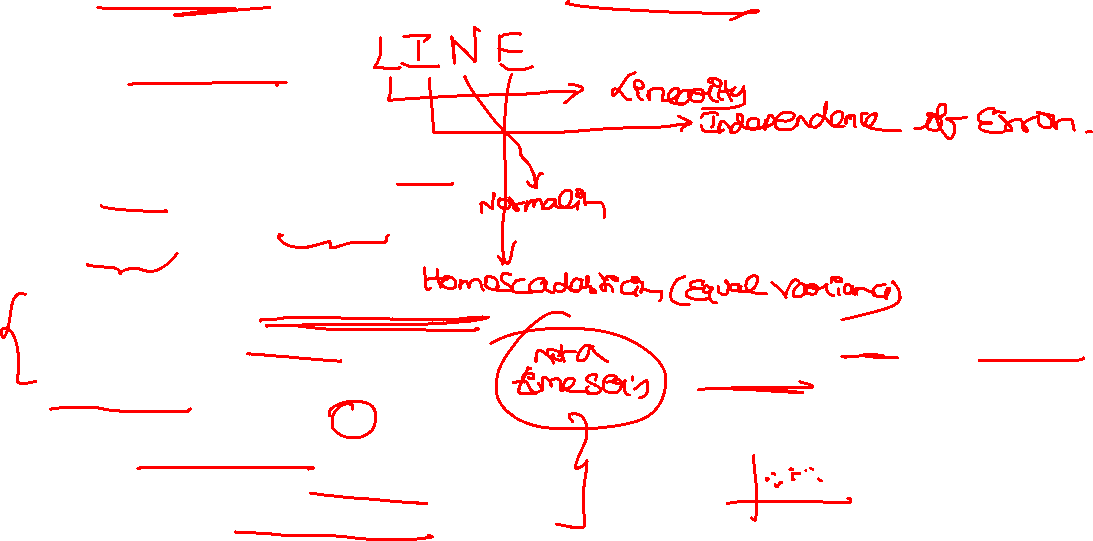 LINE
Linearity
Independence of Error.
Normality
Homoscadasticity (Equal Variance)
not a
time series